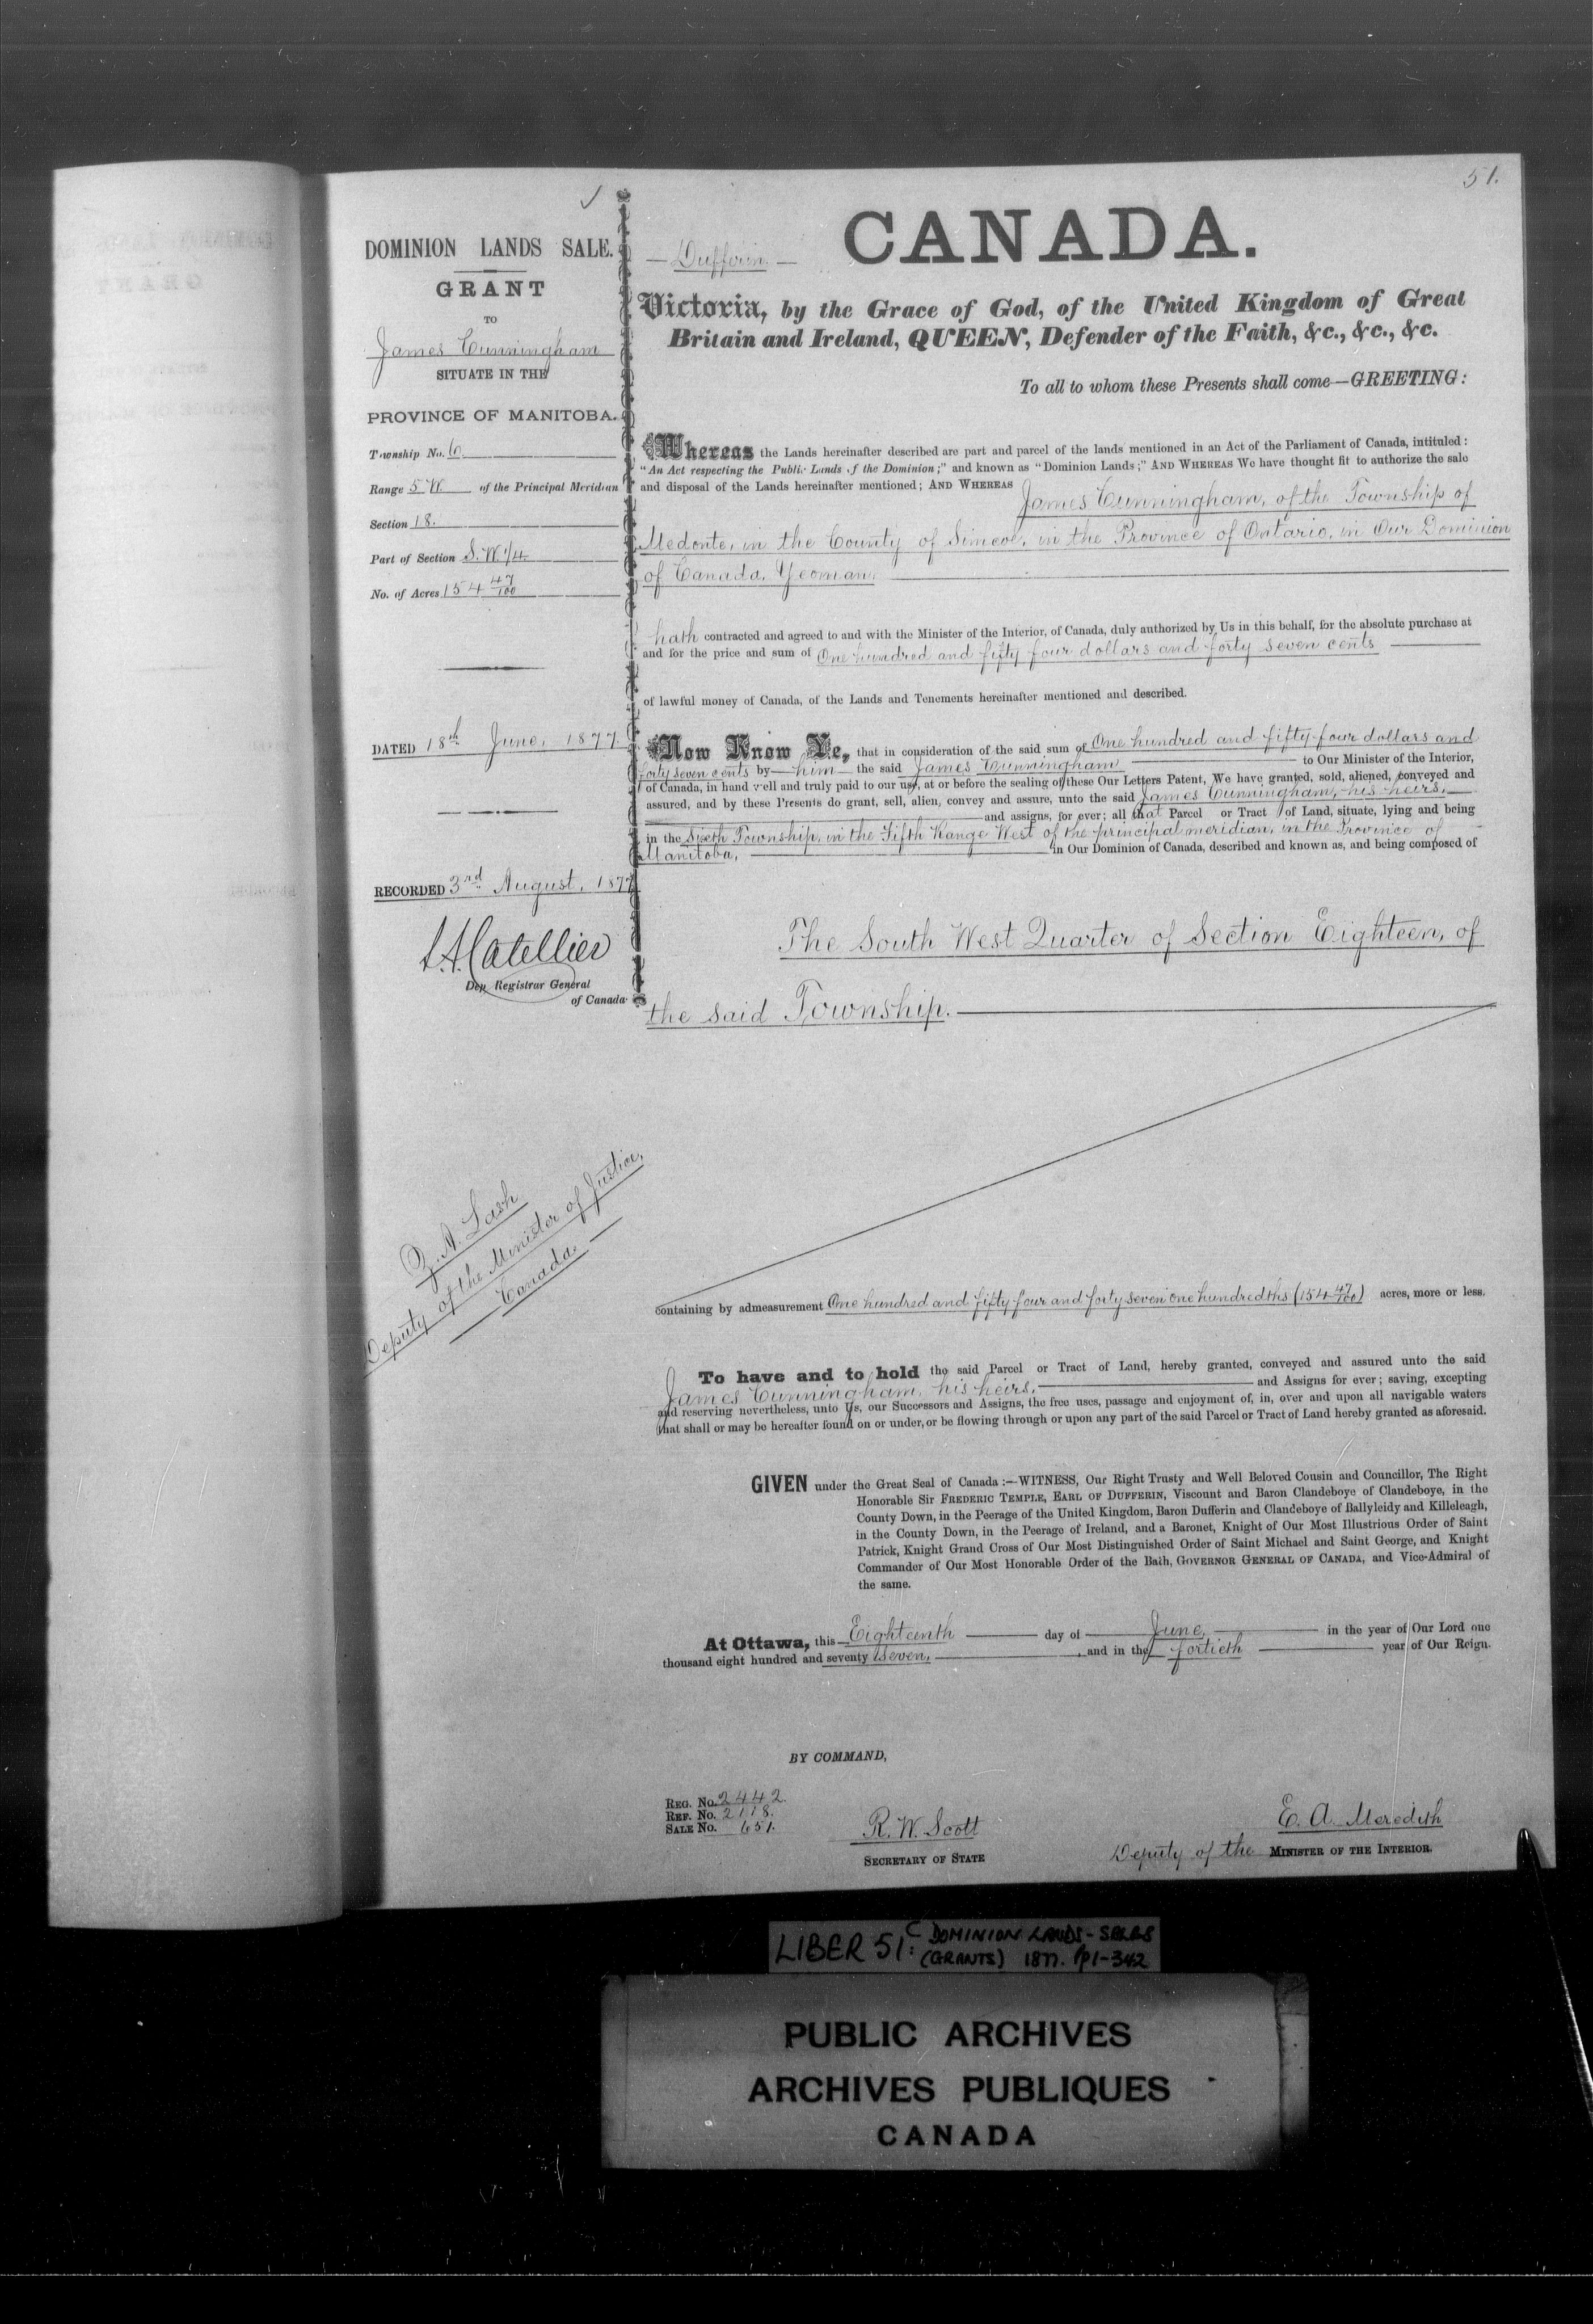 51.
DOMINION LANDS SALE.
GRANT
TO
James Cunningham
SITUATE IN THE
PROVINCE OF MANITOBA.
Township No. 6.
Range 5 W. of the Principal Meridian
Section 18.
Part of Section S. W. 1/4
No. of Acres 154 47/100
DATED 18th June, 1877.
RECORDED 3rd August, 1877
L.A. Catellier
Dep. Registrar General
of Canada
Z. A. Lash
Deputy of the Minister of Justice,
Canada.
— Dufferin. —
CANADA.
Victoria, by the Grace of God, of the United Kingdom of Great
Britain and Ireland, QUEEN, Defender of the Faith, &c., &c., &c.
To all to whom these Presents shall come—GREETING:
Whereas the Lands hereinafter described are part and parcel of the lands mentioned in an Act of the Parliament of Canada, intituled:
"An Act respecting the Public Lands of the Dominion;" and known as "Dominion Lands;" AND WHEREAS We have thought fit to authorize the sale
and disposal of the Lands hereinafter mentioned; AND WHEREAS James Cunningham, of the Township of
Medonte, in the County of Simcoe, in the Province of Ontario, in Our Dominion
of Canada, Yeoman,
hath contracted and agreed to and with the Minister of the Interior, of Canada, duly authorized by Us in this behalf, for the absolute purchase at
and for the price and sum of One hundred and fifty four dollars and forty seven cents
of lawful money of Canada, of the Lands and Tenements hereinafter mentioned and described.
Now Know Ye, that in consideration of the said sum of One hundred and fifty-four dollars and
forty seven cents by him the said James Cunningham to Our Minister of the Interior,
of Canada, in hand well and truly paid to our use, at or before the sealing of these Our Letters Patent, We have granted, sold, aliened, conveyed and
assured, and by these Presents do grant, sell, alien, convey and assure, unto the said James Cunningham, his heirs,
and assigns, for ever; all that Parcel or Tract of Land, situate, lying and being
in the Sixth Township, in the Fifth Range West of the principal meridian, in the Province of
Manitoba, in Our Dominion of Canada, described and known as, and being composed of
The South West Quarter of Section Eighteen, of
the said Township.
containing by admeasurement One hundred and fifty four and forty seven one hundredths (154 47/100) acres, more or less.
To have and to hold the said Parcel or Tract of Land, hereby granted, conveyed and assured unto the said
James Cunningham, his heirs, and Assigns for ever; saving, excepting
and reserving nevertheless, unto Us, our Successors and Assigns, the free uses, passage and enjoyment of, in, over and upon all navigable waters
that shall or may be hereafter found on or under, or be flowing through or upon any part of the said Parcel or Tract of Land hereby granted as aforesaid.
GIVEN under the Great Seal of Canada:—WITNESS, Our Right Trusty and Well Beloved Cousin and Councillor, The Right
Honorable Sir FREDERIC TEMPLE, EARL OF DUFFERIN, Viscount and Baron Clandeboye of Clandeboye, in the
County Down, in the Peerage of the United Kingdom, Baron Dufferin and Clandeboye of Ballyleidy and Killeleagh,
in the County Down, in the Peerage of Ireland, and a Baronet, Knight of Our Most Illustrious Order of Saint
Patrick, Knight Grand Cross of Our Most Distinguished Order of Saint Michael and Saint George, and Knight
Commander of Our Most Honorable Order of the Bath, GOVERNOR GENERAL OF CANADA, and Vice-Admiral of
the same.
At Ottawa, this Eighteenth day of June, in the year of Our Lord one
thousand eight hundred and seventy seven, and in the fortieth year of Our Reign.
BY COMMAND,
REG. No. 2442.
REF. No. 2118.
SALE No. 651.
R. W. Scott
SECRETARY OF STATE
E. A. Meredith
Deputy of the MINISTER OF THE INTERIOR.
LIBER 51C: DOMINION LANDS-SALES
(GRANTS) 1877. pp1-342
PUBLIC ARCHIVES
ARCHIVES PUBLIQUES
CANADA